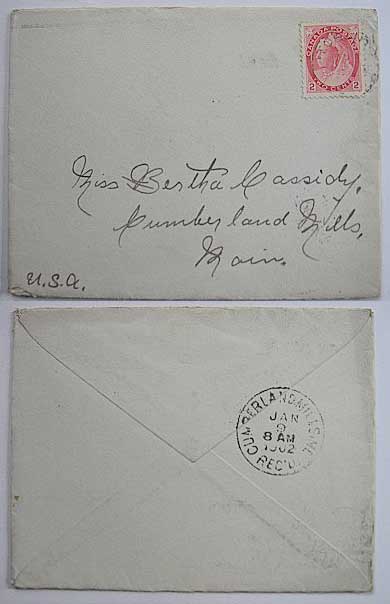 CANADA POSTAGE
2 2
TWO CENTS
Miss Bertha Cassidy,
Cumberland Mills,
Main.
U.S.A.
CUMBERLAND MILLS, ME.
JAN
9
8 AM
1902
REC'D.